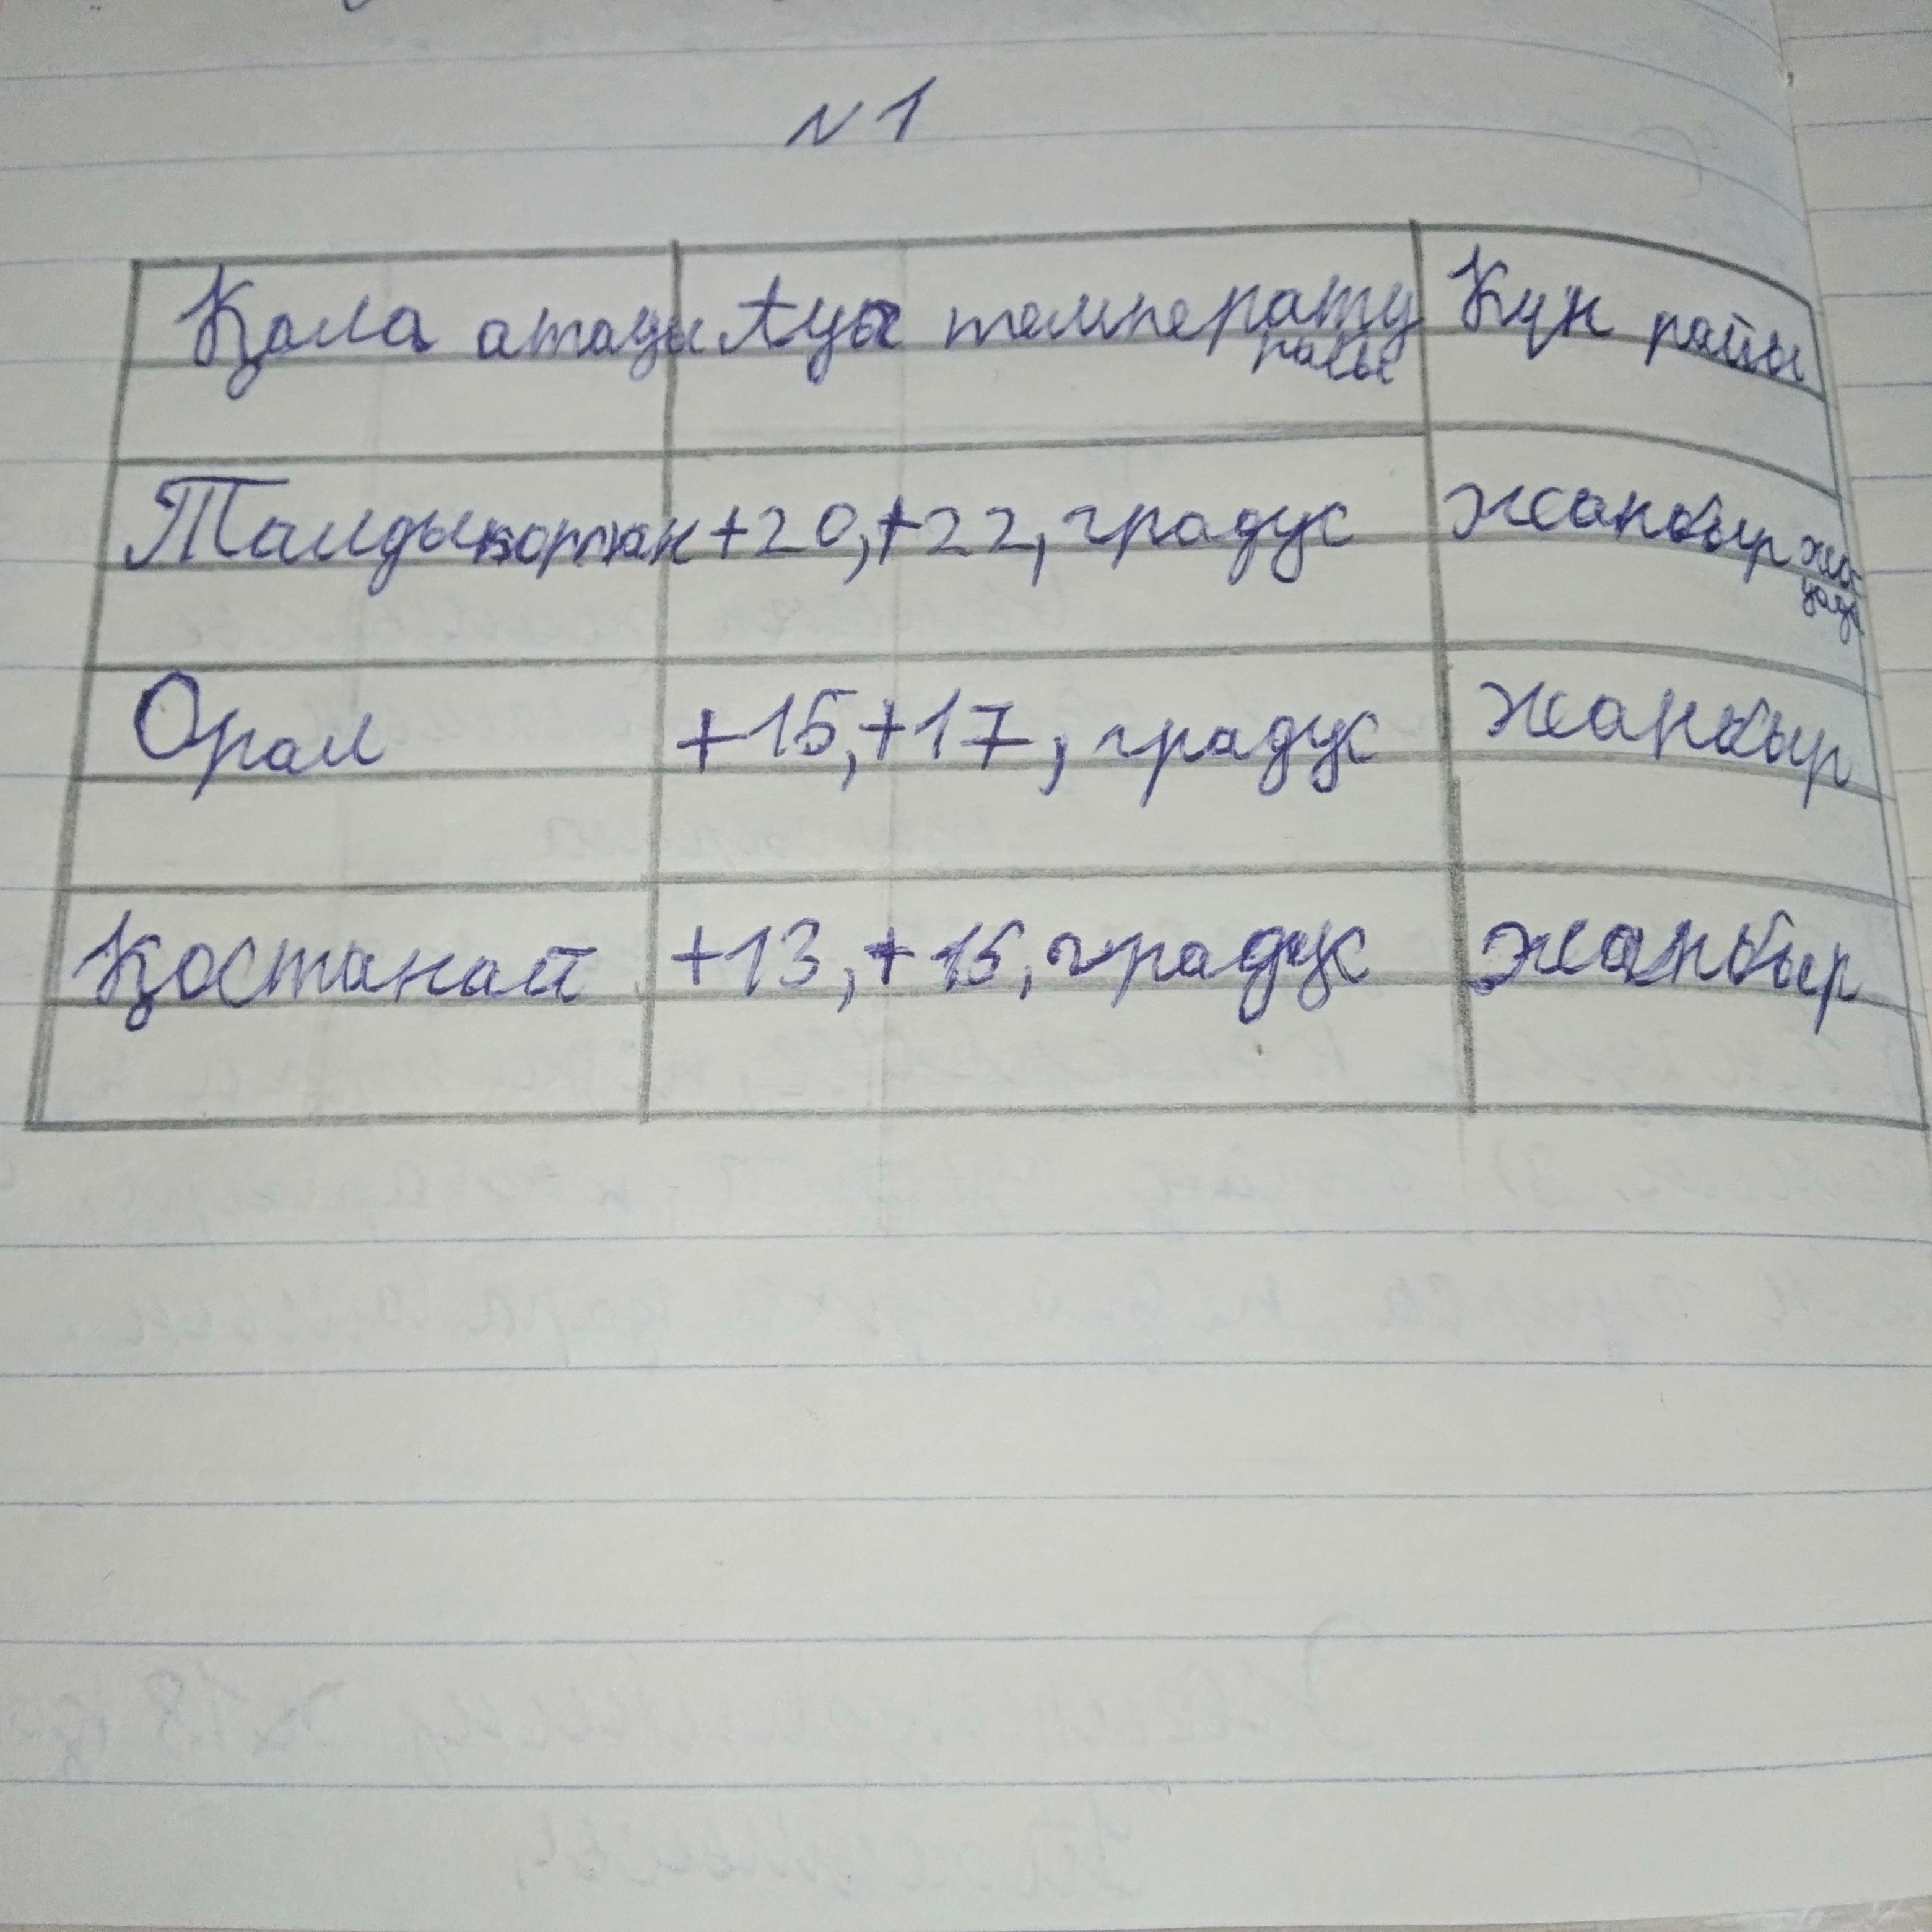 N1
Қала атауы Ауа температу Күн райы
расы
Талдықорған +20,+22, градус жанбыр
Орал +15,+17, градус жанбыр
Қостанай +13,+15, градус жанбыр